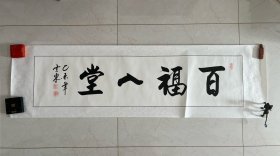 百福入堂
乙未年